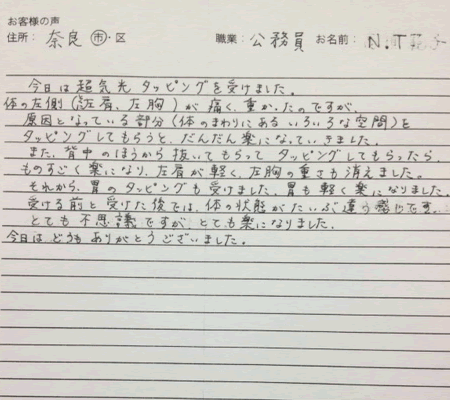 お客様の声
住所： 奈良 市・区 職業： 公務員 お名前： N.T
今日は超気光タッピングを受けました。
体の左側(左肩、左胸)が痛く、重かったのですが、
原因となっている部分(体のまわりにあるいろいろな空間)を
タッピングしてもらうと、だんだん楽になっていきました。
また、背中のほうから抜いてもらって タッピングしてもらったら、
ものすごく楽になり、左肩が軽く、左胸の重さも消えました。
それから、胃のタッピングも受けました。胃も軽く楽になりました。
受ける前と受けた後では、体の状態がだいぶ違う感じです。
とても不思議ですが、とても楽になりました。
今日はどうもありがとうございました。